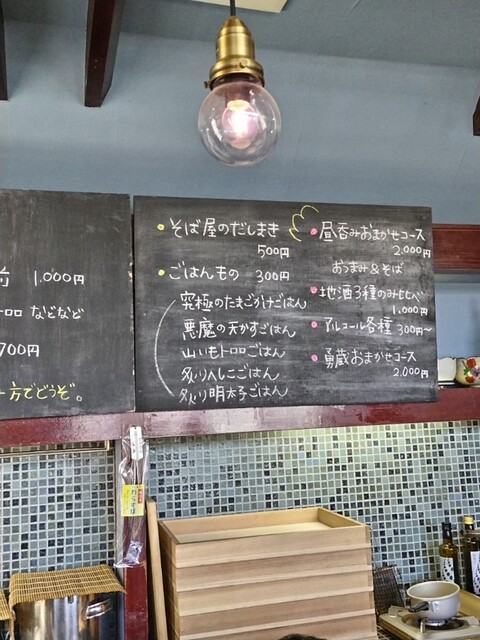 前 1.000円
トロロ などなど
700円
方でどうぞ。
・そば屋のだしまき
500円
・ごはんもの 300円
究極のたまごかけごはん
悪魔の天かすごはん
山いもトロロごはん
炙りへしこごはん
炙り明太子ごはん
・昼呑みおまかせコース
2.000円
おつまみ&そば
・地酒3種のみ比べ
1.000円
・アルコール各種 300円～
・勇蔵おまかせコース
2.000円